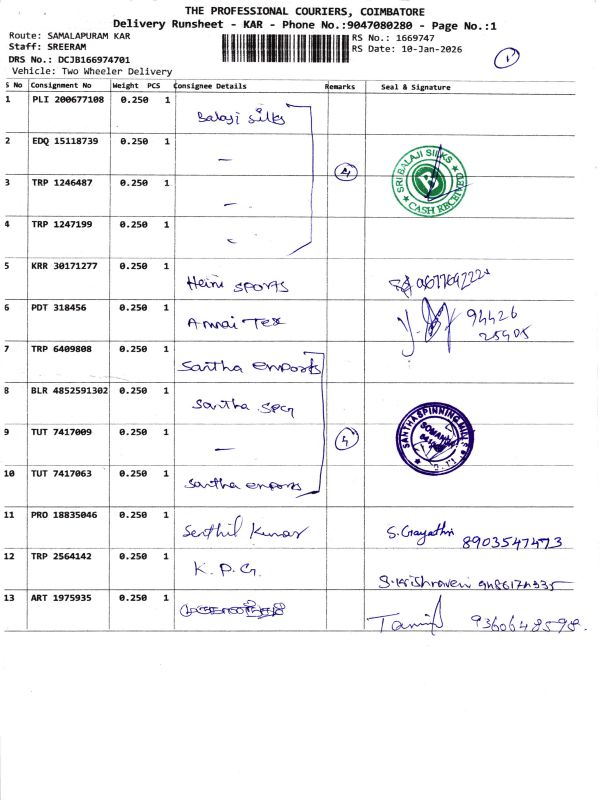 THE PROFESSIONAL COURIERS, COIMBATORE
Delivery Runsheet - KAR - Phone No.:9047080280 - Page No.:1
Route: SAMALAPURAM KAR RS No.: 1669747
Staff: SREERAM RS Date: 10-Jan-2026
DRS No.: DCJB166974701
Vehicle: Two Wheeler Delivery
1
S No Consignment No Weight PCS Consignee Details Remarks Seal & Signature
1 PLI 200677108 0.250 1 Balaji Silks
2 EDQ 15118739 0.250 1 –
3 TRP 1246487 0.250 1 – 4 SRI BALAJI SILKS CASH RECEIVED
4 TRP 1247199 0.250 1
5 KRR 30171277 0.250 1 Heini sports
6 PDT 318456 0.250 1 Annai Tex 94426
25905
7 TRP 6409808 0.250 1 Santha exports
8 BLR 4852591302 0.250 1 Santha Spg
9 TUT 7417009 0.250 1 – 4 SANTHA SPINNING MILLS
10 TUT 7417063 0.250 1 Santha exports
11 PRO 18835046 0.250 1 Senthil Kumar S. Gayathri 8903547473
12 TRP 2564142 0.250 1 K.P.G. S. Krishnaveni
13 ART 1975935 0.250 1 Tamil 9360648598.